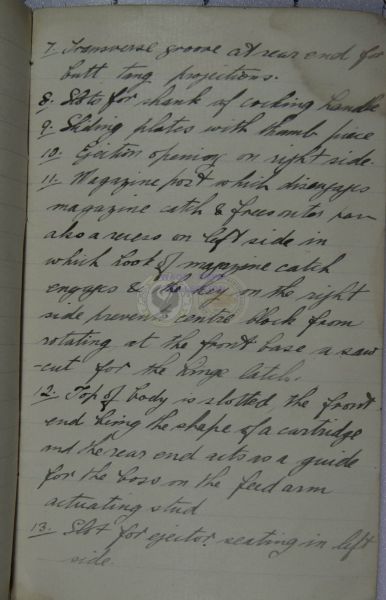 7. Transverse groove at rear end for
butt tang projections.
8. Slots for shank of cocking handle
9. Sliding plates with thumb piece
10. Ejection opening on right side.
11. Magazine post which disengages
magazine catch &
also a recess on left side in
which hook of magazine catch
engages & the on the right
side prevents centre block from
rotating at the front base a saw
-cut for the hinge catch.
12. Top of body is slotted, the front
end being the shape of a cartridge
and the rear end acts as a guide
for the boss on the feed arm
actuating stud
13. Slot for ejector seating in left
side.